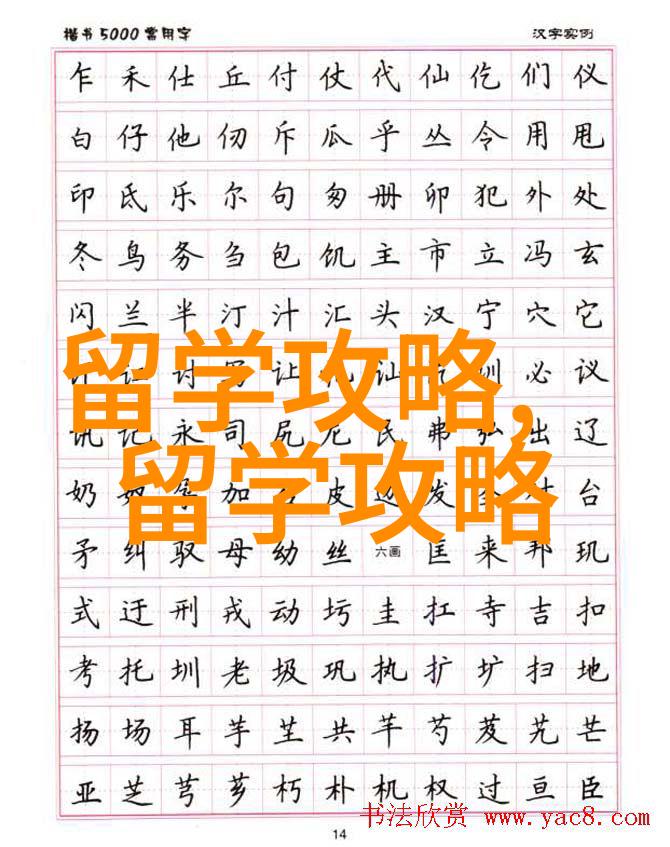 楷书5000常用字 汉字实例
乍禾仕丘付仗代仙仡们仪
白仔他仞斥瓜乎丛令用甩
印氐乐尔句匆册卯犯外处
冬鸟务刍包饥主市立冯玄
闪兰半汀汁汇头汉宁穴它
讨写让礼讪训必议
留学攻略，
讯记永司尻尼民弗弘出辽
奶奴孕加皮边发圣对台
留学攻略
矛纠驭母幼丝六画匡耒邦玑
式迂刑戎动圬圭扛寺吉扣
考托圳老圾巩执扩圹扫地
扬场耳芋芏共芊芍芨艽芒
亚芝芎芗朽朴机权过亘臣
书法欣赏 www.yac8.com
14